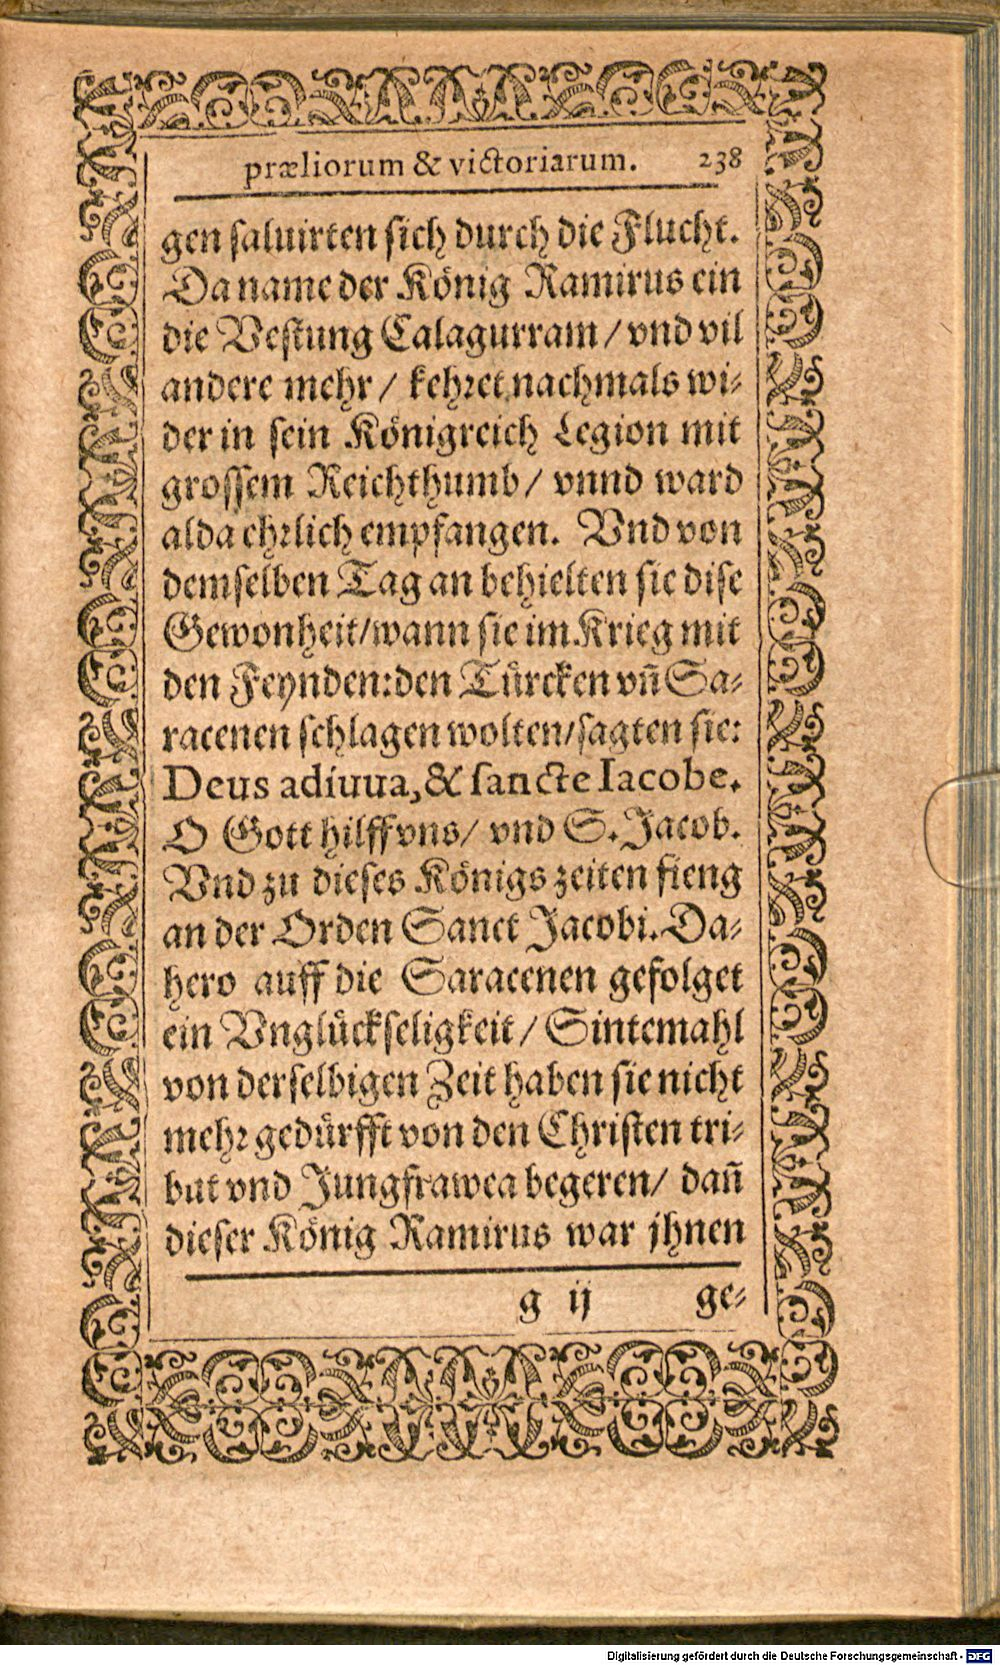 præliorum & victoriarum. 238
gen saluirten sich durch die Flucht.
Da name der König Ramirus ein
die Vestung Calagurram / vnd vil
andere mehr / kehret nachmals wi-
der in sein Königreich Legion mit
grossem Reichthumb / vnnd ward
alda ehrlich empfangen. Vnd von
demselben Tag an behielten sie dise
Gewonheit/wann sie im Krieg mit
den Feynden:den Türcken vñ Sa-
racenen schlagen wolten/sagten sie:
Deus adiuua, & sancte Iacobe.
O Gott hilff vns/ vnd S. Jacob.
Vnd zu dieses Königs zeiten fieng
an der Orden Sanct Jacobi. Da-
hero auff die Saracenen gefolget
ein Vnglückseligkeit / Sintemahl
von derselbigen Zeit haben sie nicht
mehr gedürfft von den Christen tri-
but vnd Jungfrawea begeren/ dañ
dieser König Ramirus war jhnen
g ij ge-
Digitalisierung gefördert durch die Deutsche Forschungsgemeinschaft - DFG